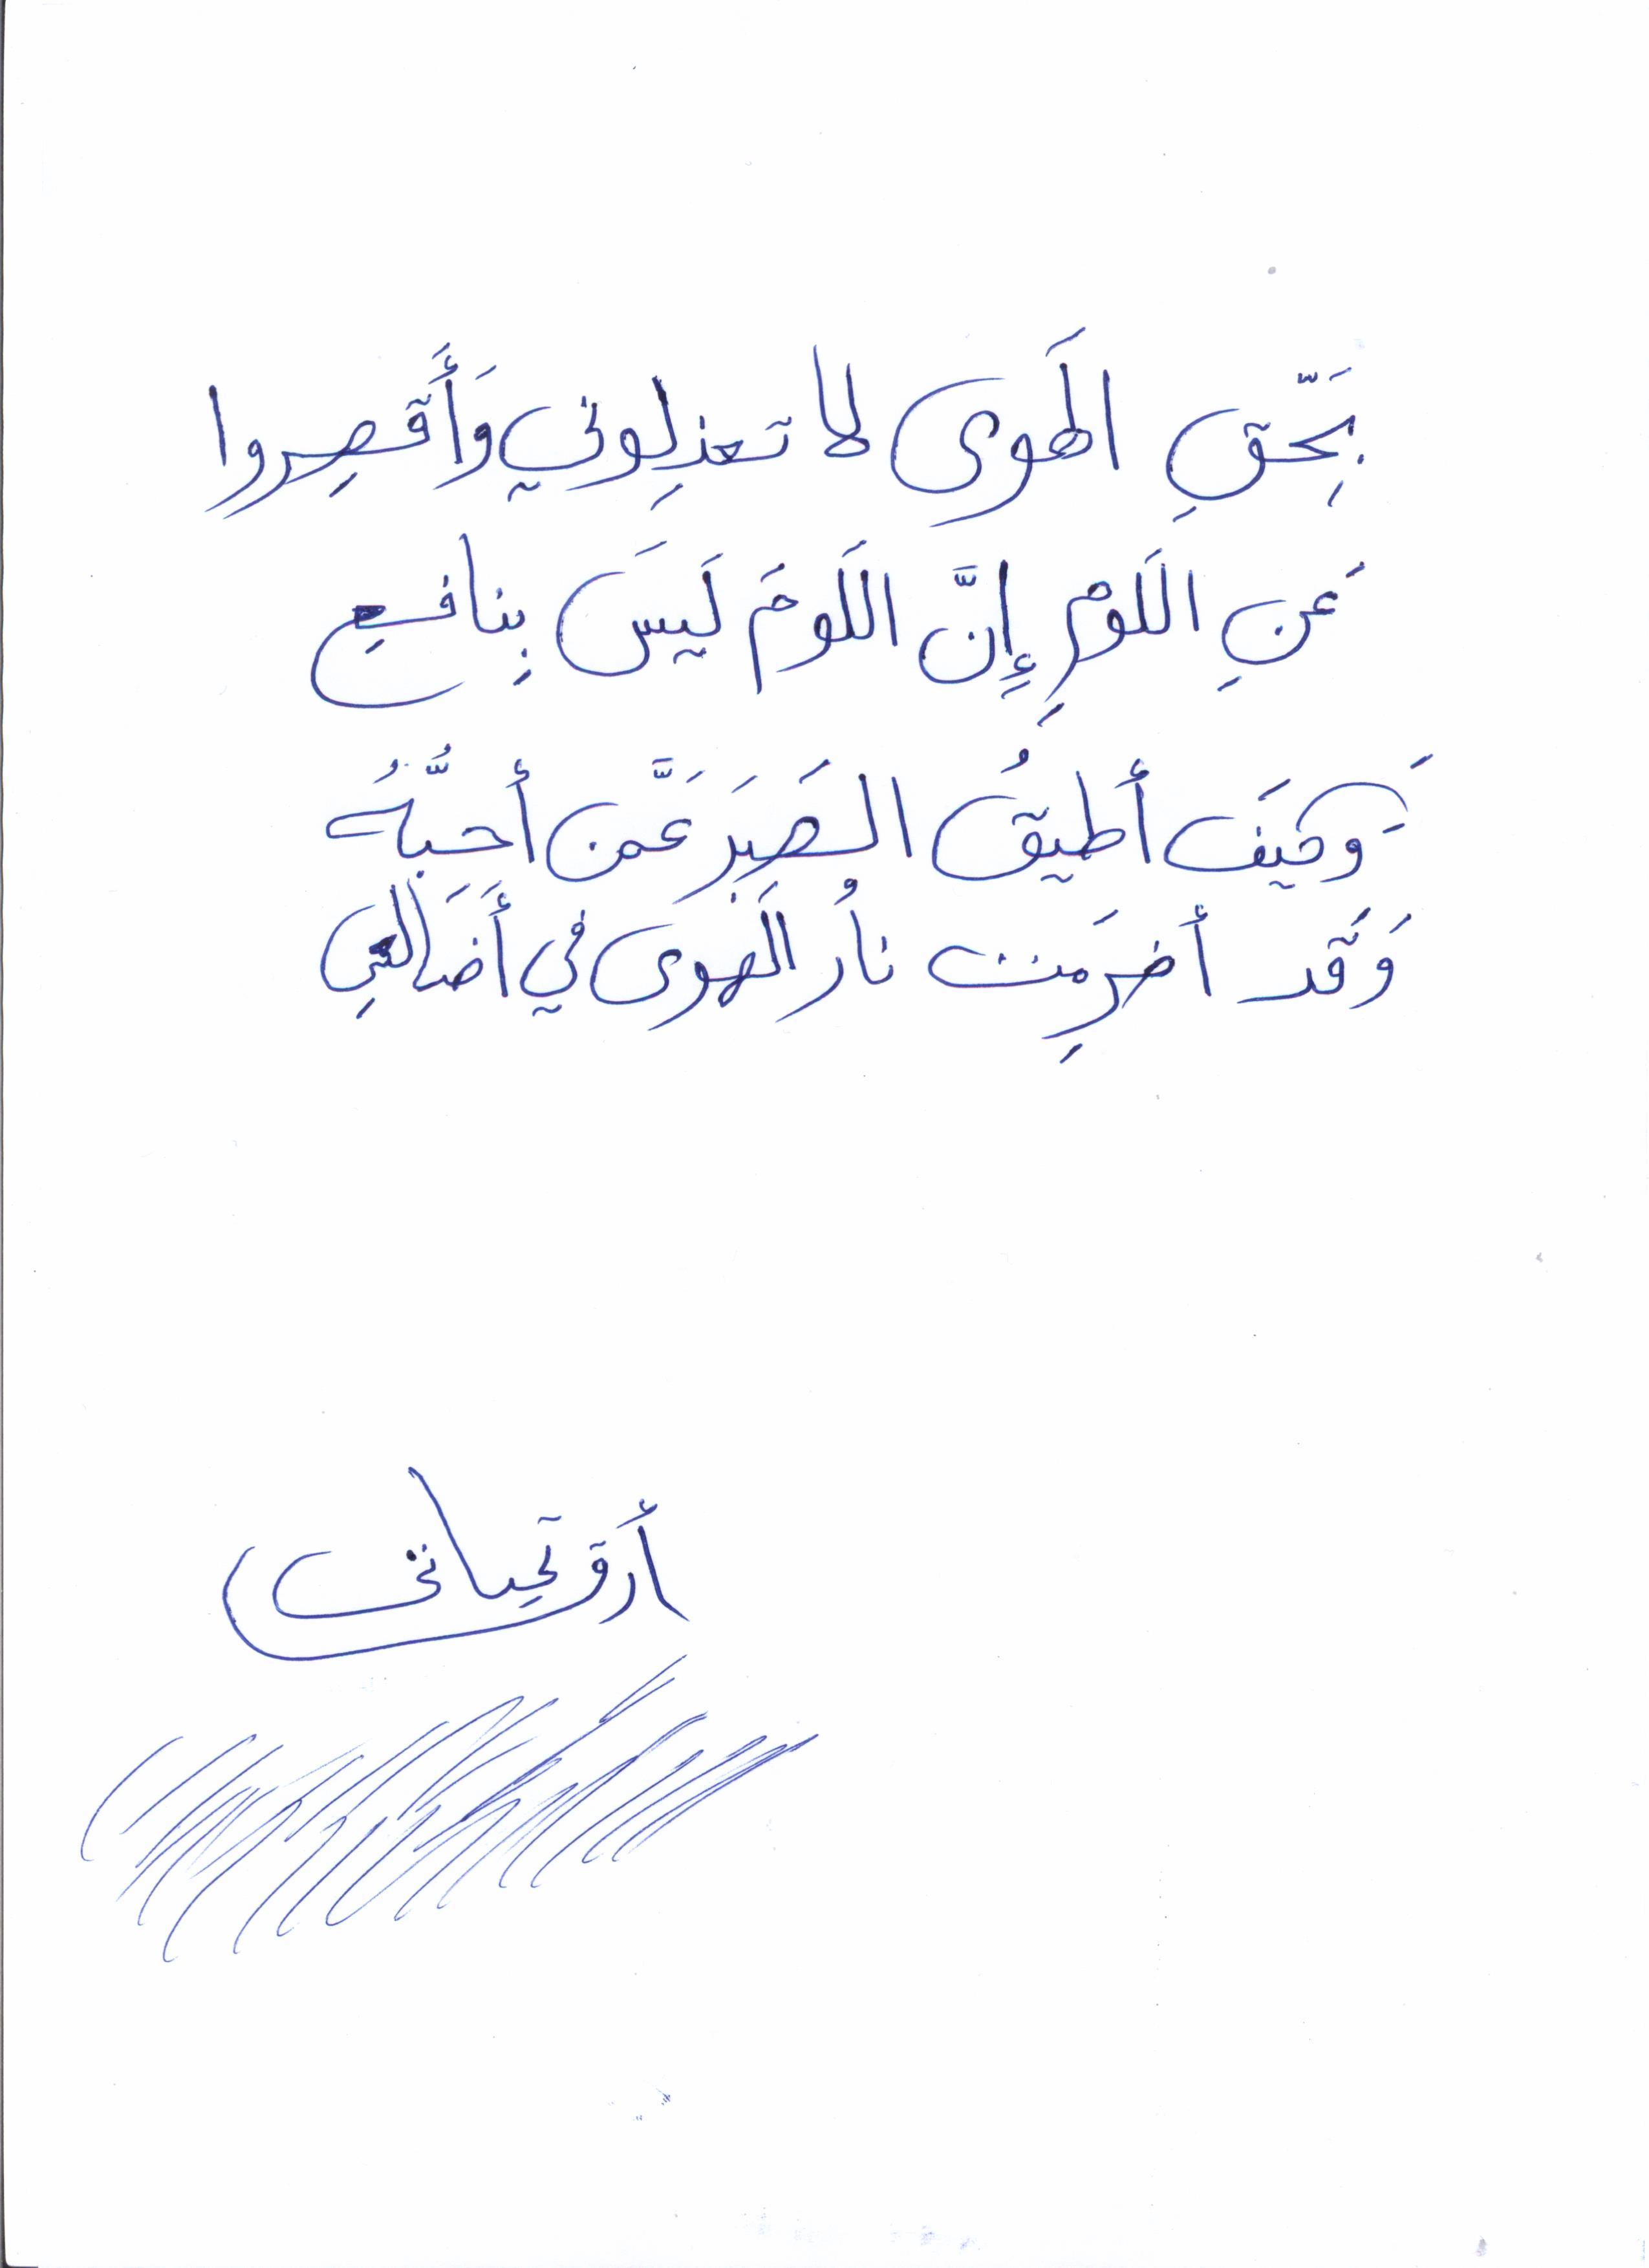 بِحَقِّ الهَوى لا تعذِلوني وَأَقصِروا
عَنِ اللَومِ إِنَّ اللَومَ لَيسَ بِنافِعِ
وَكَيفَ أطيقُ الصَبرَ عَمَّن أحبُّهُ
وَقَد أضرِمَت نارُ الهَوى في أَضالعِي
أَرق تحياتى